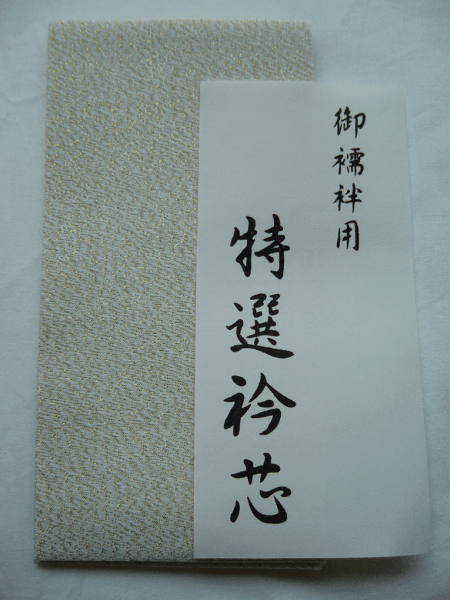 御襦袢用
特選衿芯